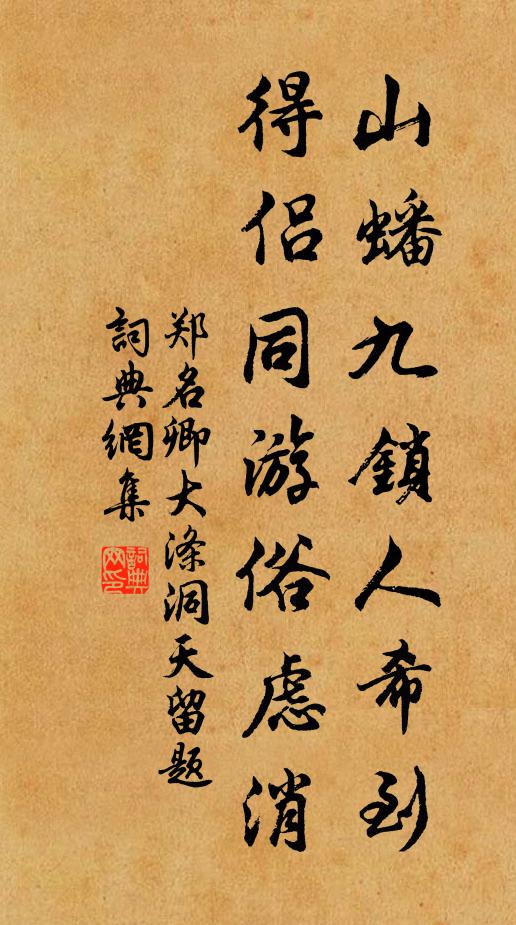 山蟠九鎖人希到
得侣同游俗慮消
郑名卿大涤洞天留题
詞典網集
詞典网印